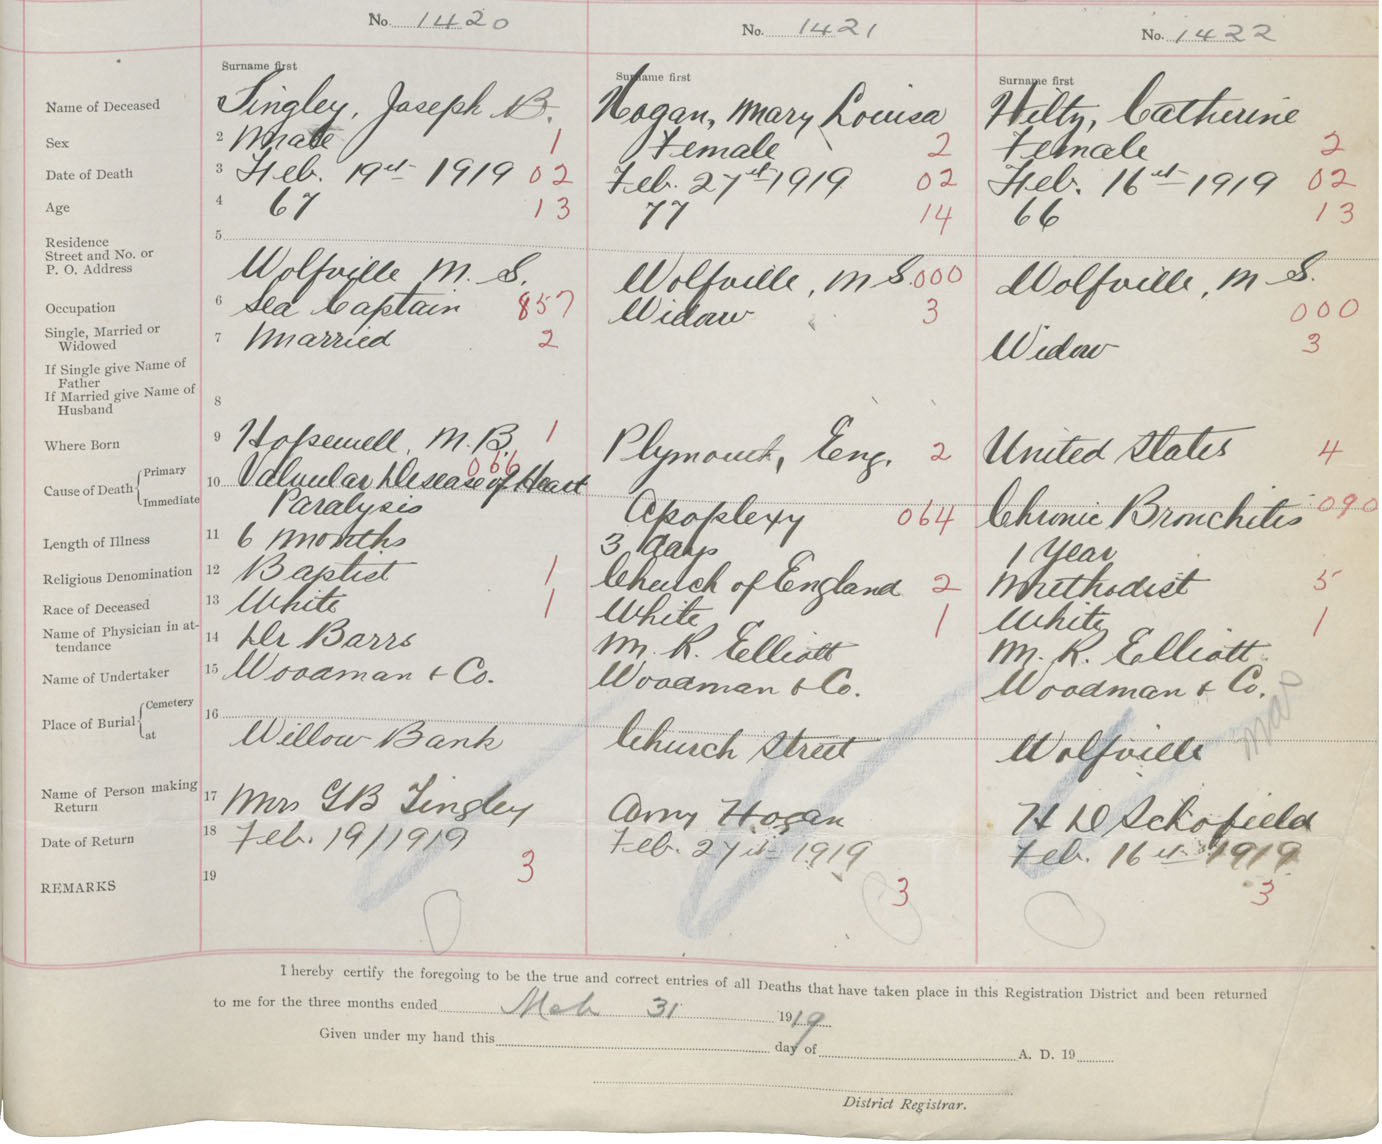 No. 1420 No. 1421 No. 1422
Surname first Surname first Surname first
Name of Deceased Tingley, Joseph B. Hogan, Mary Louisa Hilty, Catherine
Sex 2 Male 1 Female 2 Female 2
Date of Death 3 Feb. 19st 1919 02 Feb. 27st 1919 02 Feb. 16st 1919 02
Age 4 67 13 77 14 66 13
Residence 5
Street and No. or
P. O. Address Wolfville N. S. Wolfville, N S. 000 Wolfville, N S.
Occupation 6 Sea Captain 857 Widow 3 000
Single, Married or
Widowed 7 Married 2 Widow 3
If Single give Name of
Father
If Married give Name of
Husband 8
Where Born 9 Hopewell, N. B. 1 Plymouth, Eng. 2 United States 4
Cause of Death Primary 10 Valvular Disease of Heart 066
Immediate Paralysis Apoplexy 064 Chronic Bronchitis 090
Length of Illness 11 6 months 3 days 1 Year
Religious Denomination 12 Baptist 1 Church of England 2 Methodist 5
Race of Deceased 13 White 1 White 1 White 1
Name of Physician in at-
tendance 14 Dr Barrs M. R. Elliott M. R. Elliott
Name of Undertaker 15 Woodman & Co. Woodman & Co. Woodman & Co.
Place of Burial Cemetery 16
at Willow Bank Church Street Wolfville
Name of Person making
Return 17 Mrs G B Tingley Amy Hogan H D Schofield
Date of Return 18 Feb. 19/1919 Feb. 27st 1919 Feb. 16st 1919
REMARKS 19 3 3 3
I hereby certify the foregoing to be the true and correct entries of all Deaths that have taken place in this Registration District and been returned
to me for the three months ended Mch 31 1919
Given under my hand this day of A. D. 19
District Registrar.